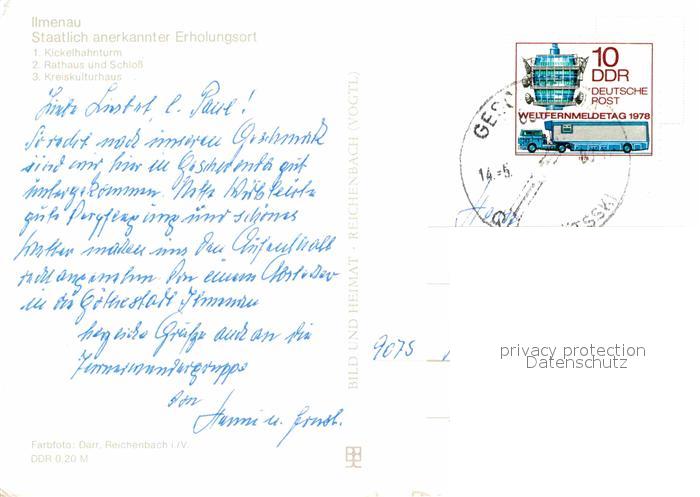 Ilmenau
Staatlich anerkannter Erholungsort
1. Kickelhahnturm
2. Rathaus und Schloß
3. Kreiskulturhaus
Liebe Lisbet, l. Paul!
So recht nach unseren Geschmack
sind wir hier in Geschwenda gut
untergekommen. Nette Wirtsleute
gute Verpflegung und schönes
Wetter machen uns den Aufenthalt
recht angenehm. Von einem Abstecher
in die Göthestadt Ilmenau
herzliche Grüße auch an die
von
Hanni u. Ernst.
Farbfoto: Darr, Reichenbach i./V.
DDR 0,20 M
BILD UND HEIMAT · REICHENBACH (VOGTL)
10
DDR
DEUTSCHE
POST
WELTFERNMELDETAG 1978
GES
14.-5.
9075
privacy protection
Datenschutz